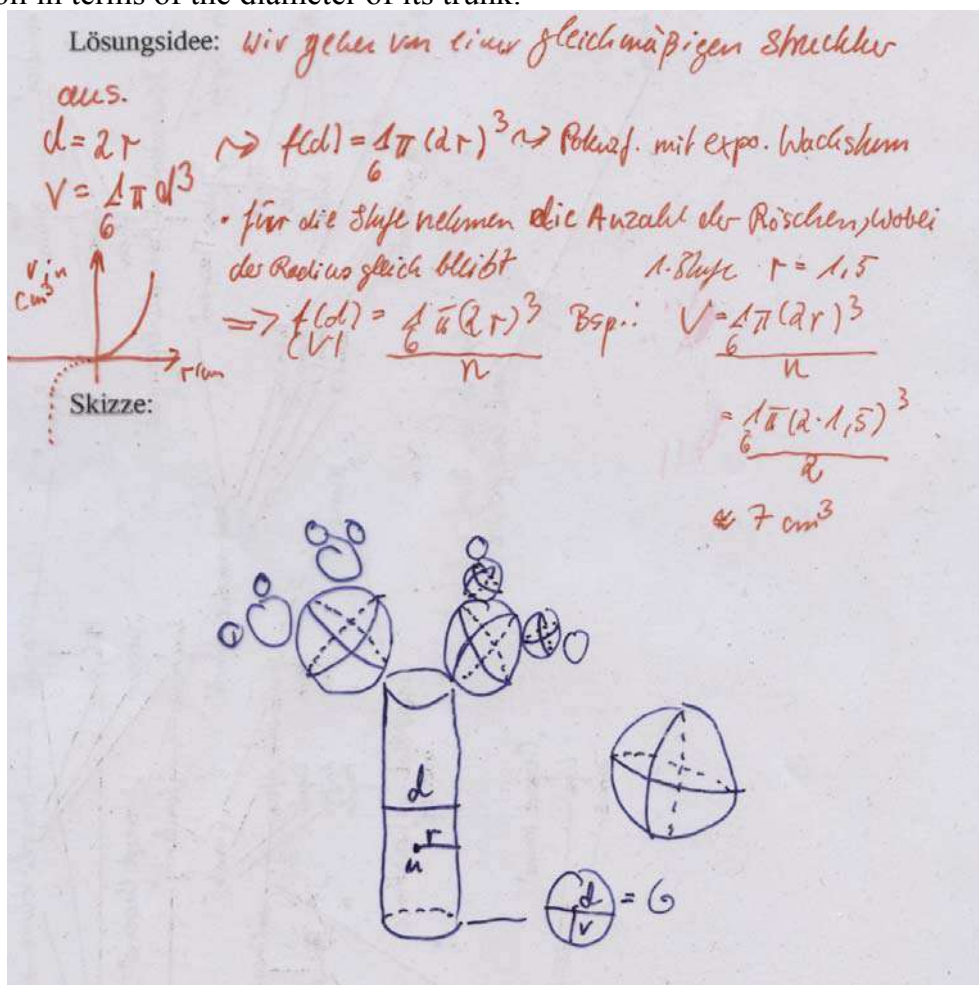 on in terms of the diameter of its trunk.
Lösungsidee: Wir gehen von einer gleichmäßigen Struktur
aus.
d = 2r ⤳ f(d) = 1/6 π (2r)³ ⤳ Potenzf. mit expo. Wachstum
V = 1/6 π d³
• für die Stufe nehmen die Anzahl der Röschen, wobei
der Radius gleich bleibt 1. Stufe r = 1,5
V in cm³
r/cm
=> f(d) (V) = 1/6 π (2r)³ / n Bsp.: V = 1/6 π (2r)³ / n
= 1/6 π (2·1,5)³ / 2
≈ 7 cm³
Skizze:
d
r
d
= G